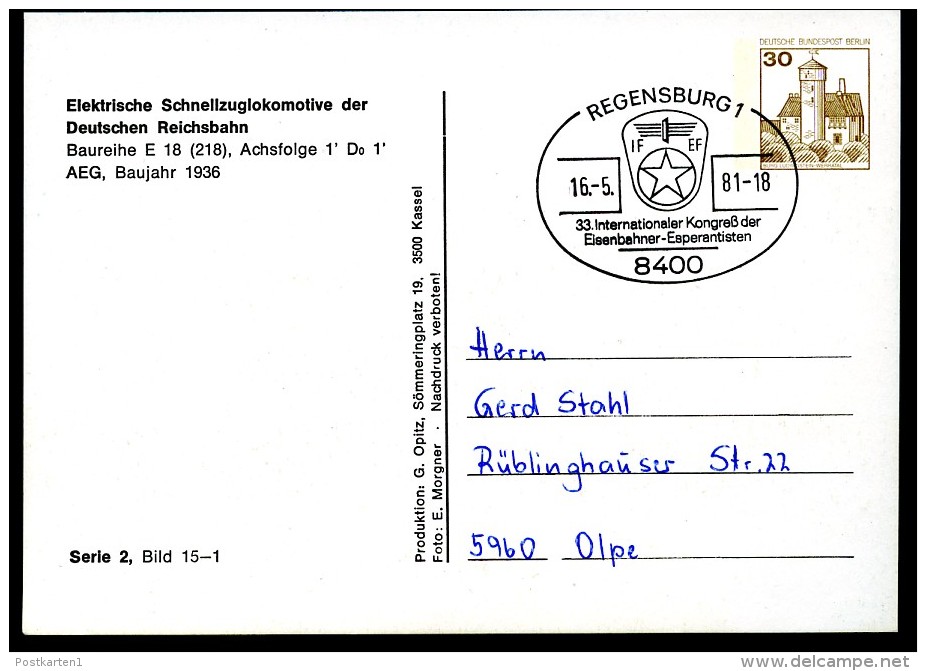 DEUTSCHE BUNDESPOST BERLIN
30
Elektrische Schnellzuglokomotive der
Deutschen Reichsbahn
Baureihe E 18 (218), Achsfolge 1' Do 1'
AEG, Baujahr 1936
REGENSBURG 1
IF EF
16.-5. 81-18
33. Internationaler Kongreß der
Eisenbahner-Esperantisten
8400
Produktion: G. Opitz, Sömmeringplatz 19, 3500 Kassel
Foto: E. Morgner · Nachdruck verboten!
Herrn
Gerd Stahl
Rüblinghauser Str. 22
5960 Olpe
Serie 2, Bild 15-1
Postkarten1
www.delcampe.net